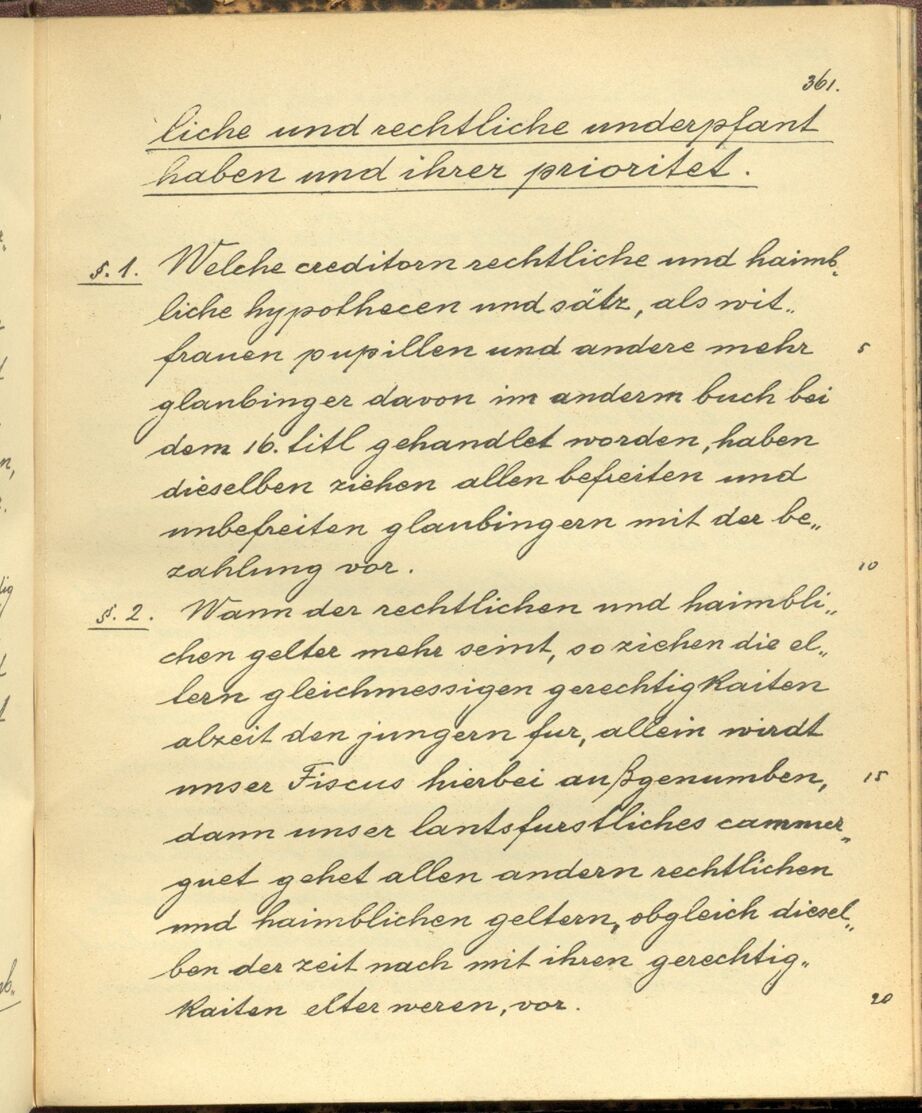 361.
liche und rechtliche underpfant
haben und ihrer prioritet.
§. 1. Welche creditorn rechtliche und haimb„
liche hypothecen und sätz, als wit„
frauen pupillen und andere mehr 5
glaubinger davon im anderm buch bei
dem 16. titl gehandlet worden, haben
dieselben ziehen allen befreiten und
unbefreiten glaubingern mit der be„
zahlung vor. 10
§. 2. Wann der rechtlichen und haimbli„
chen gelter mehr seint, so ziehen die el„
tern gleichmessigen gerechtigkaiten
alzeit den jungern fur, allein wirdt
unser Fiscus hierbei außgenumben, 15
dann unser lantsfurstliches cammer„
guet gehet allen andern rechtlichen
und haimblichen geltern, obgleich diesel„
ben der zeit nach mit ihren gerechtig„
kaiten elter weren, vor. 20